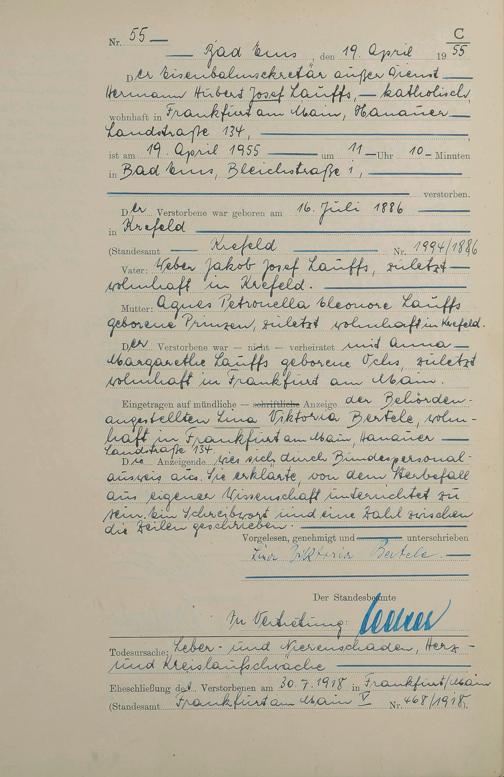 C
Nr. 55
Bad Ems, den 19. April 1955
Der Eisenbahnsekretär außer Dienst
Hermann Hubert Josef Lauffs, — katholisch,
wohnhaft in Frankfurt am Main, Hanauer
Landstraße 134,
ist am 19. April 1955 um 11 Uhr 10 Minuten
in Bad Ems, Bleichstraße 1,
verstorben.
Der Verstorbene war geboren am 16. Juli 1886
in Krefeld
(Standesamt Krefeld Nr. 1994/1886
Vater: Weber Jakob Josef Lauffs, zuletzt
wohnhaft in Krefeld.
Mutter: Agnes Petronella Eleonore Lauffs
geborene Prinzen, zuletzt wohnhaft in Krefeld.
Der Verstorbene war — nicht — verheiratet mit Anna
Margarethe Lauffs geborene Ochs, zuletzt
wohnhaft in Frankfurt am Main.
Eingetragen auf mündliche — schriftliche Anzeige der Behörden-
angestellten Lina Viktoria Bertele, wohn-
haft in Frankfurt am Main, Hanauer
Landstraße 134.
Die Anzeigende wies sich durch Bundespersonal-
ausweis aus. Sie erklärte, von dem Sterbefall
aus eigener Wissenschaft unterrichtet zu
sein. Ein Schreibwort und eine Zahl zwischen
die Zeilen geschrieben.
Vorgelesen, genehmigt und unterschrieben
Lina Viktoria Bertele.
Der Standesbeamte
In Vertretung:
Todesursache: Leber- und Nierenschaden, Herz-
und Kreislaufschwäche
Eheschließung des Verstorbenen am 30.7.1918 in Frankfurt/Main
(Standesamt Frankfurt am Main V Nr. 468/1918).